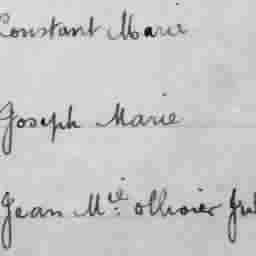 Constant Marie
Joseph Marie
Jean Mie ollivier